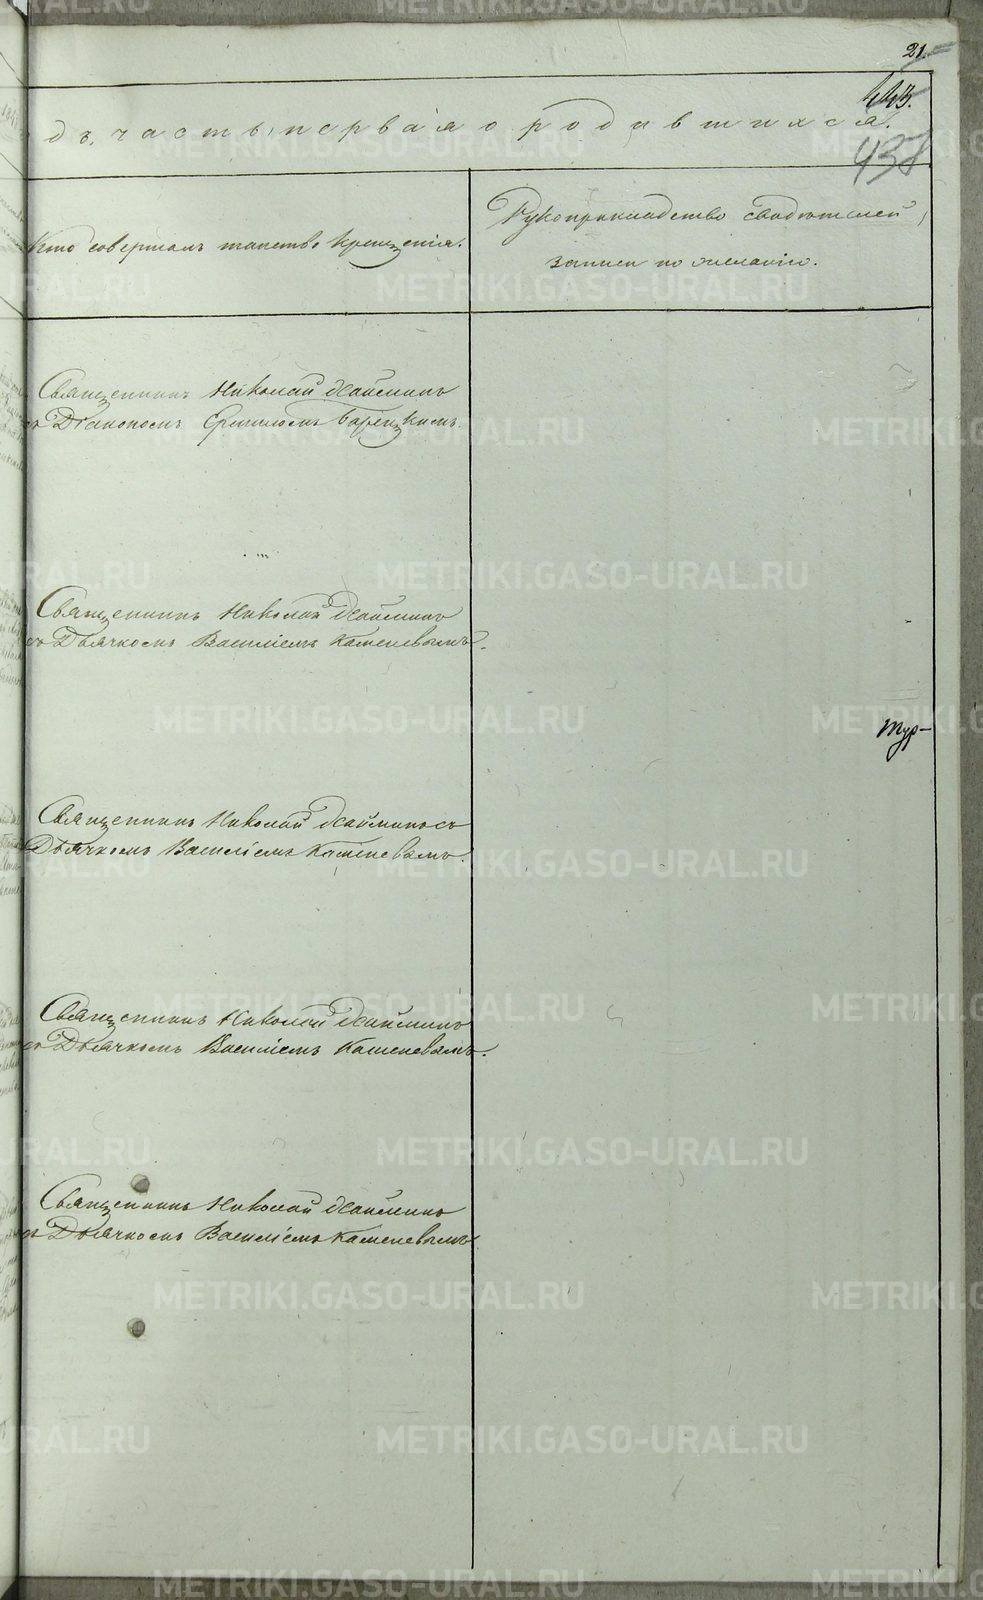 21.
438
дъ, часть первая о родившихся.
Кто совершалъ таинство крещенія.
Рукоприкладство свидѣтелей
записи по желанію.
Священникъ Николай
съ Діакономъ
Священникъ Николай
съ Дьячкомъ Василіемъ Каменевымъ.
Тур-
Священникъ Николай
Дьячкомъ Василіемъ Каменевымъ.
Священникъ Николай
съ Дьячкомъ Василіемъ Каменевымъ.
Священникъ Николай
съ Дьячкомъ Василіемъ Каменевымъ
METRIKI.GASO-URAL.RU